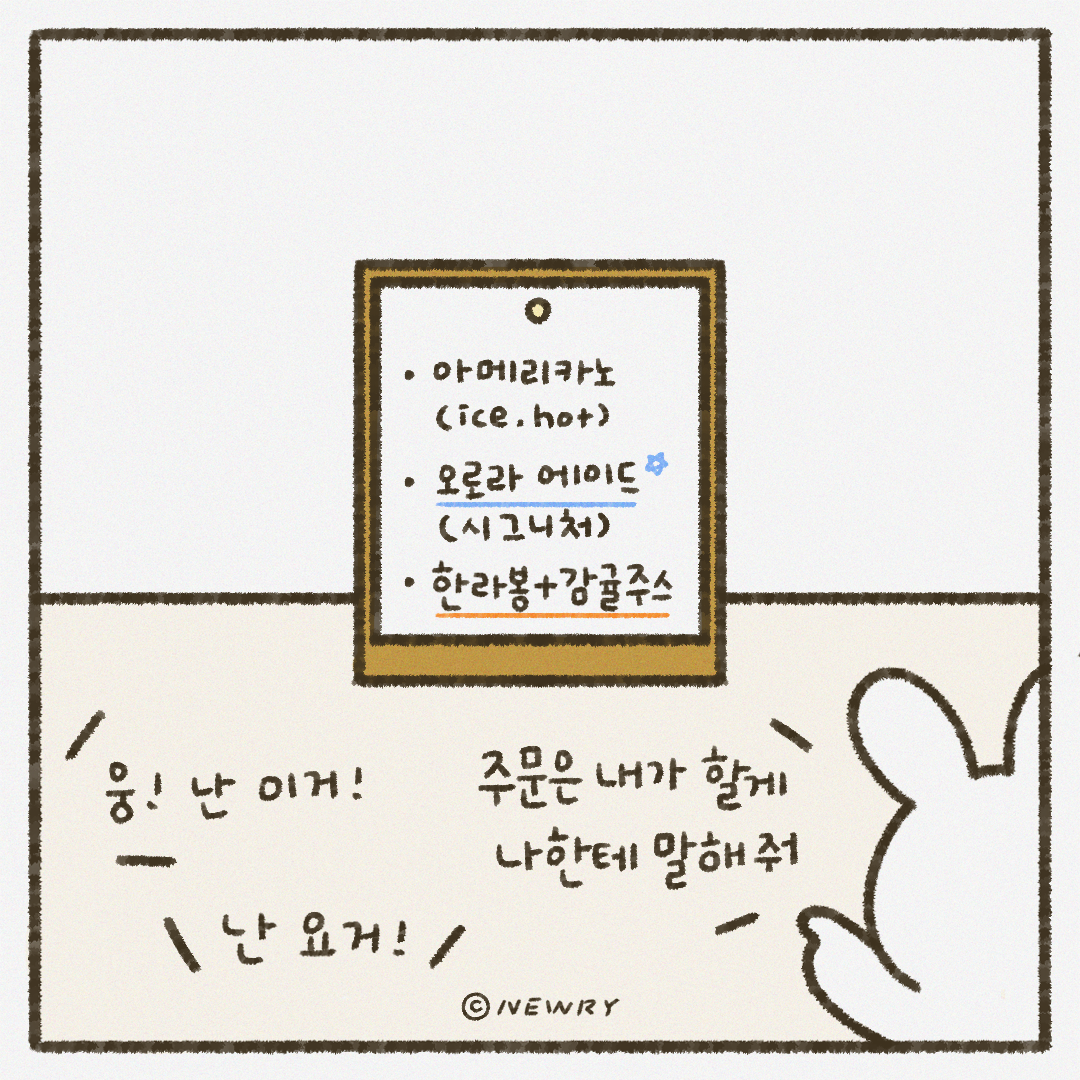 • 아메리카노
(ice.hot)
• 오로라 에이드
(시그니처)
• 한라봉+감귤주스
웅! 난 이거!
주문은 내가 할게
나한테 말해줘
난 요거!
© NEWRY